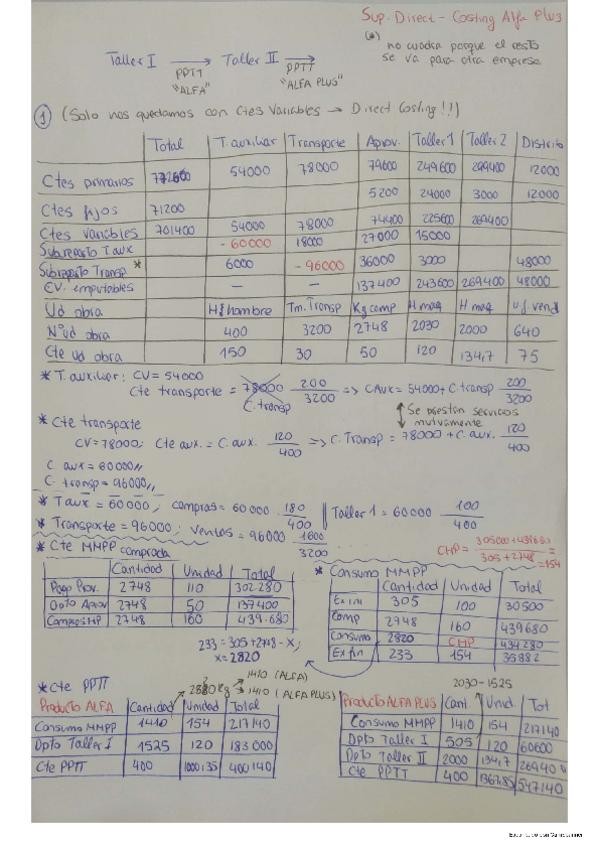 Sup. Direct - Costing Alfa Plus
(*) no cuadra porque el resto
se va para otra empresa
Taller I → Taller II →
PPTT PPTT
"ALFA" "ALFA PLUS"
① (Solo nos quedamos con Ctes Variables → Direct Costing!!)
Total T. auxiliar Transporte Aprov. Taller 1 Taller 2 Distrib
Ctes primarios 54000 78000 79600 249600 12000
Ctes fijos 71200 5200 24000 3000 12000
Ctes variables 701400 54000 78000 74400 225600 269400
Subreparto Taux - 60000 18000 27000 15000
Subreparto Transp * 6000 - 96000 36000 3000 48000
CV. imputables — — 137400 243600 269400 48000
Ud obra H/hombre Tm. Transp Kg comp H maq H maq u.f. vend
Nº ud obra 400 3200 2748 2030 2000 640
Cte ud obra 150 30 50 120 134,7 75
* T. auxiliar: CV = 54000
Cte transporte = 78000 200/3200 => CAux = 54000 + C. transp 200/3200
C. transp
↕ Se prestan servicios
mutuamente
* Cte transporte
CV = 78000; Cte aux. = C. aux. 120/400 => C. Transp = 78000 + C. aux. 120/400
C. aux = 60000,,
C. transp = 96000,,
* Taux = 60000, compras = 60000 180/400 || Taller 1 = 60000 100/400
* Transporte = 96000; ventas = 96000 1600/3200
* Cte MMPP comprada
CMP = 305·100 + 439680 / 305 + 2748 = 154
Cantidad Unidad Total
Pago Prov. 2748 110 302.280
Dpto Aprov 2748 50 137400
Compras MP 2748 160 439.680
* Consumo MMPP
Cantidad Unidad Total
Ex ini 305 100 30500
Comp 2748 160 439680
Consumo 2820 CMP 434280
Ex fin 233 154 35882
233 = 305 + 2748 - x;
x = 2820
* Cte PPTT
2820 Kg → 1410 (ALFA)
→ 1410 (ALFA PLUS)
2030 - 1525
Producto ALFA Cantidad Unidad Total
Consumo MMPP 1410 154 217140
Dpto Taller I 1525 120 183000
Cte PPTT 400 1000,35 400140
Producto ALFA PLUS Cant. Unid. Tot
Consumo MMPP 1410 154 217140
Dpto Taller I 505 120 60600
Dpto Taller II 2000 134,7 269400
Cte PPTT 400 1367,85 547140